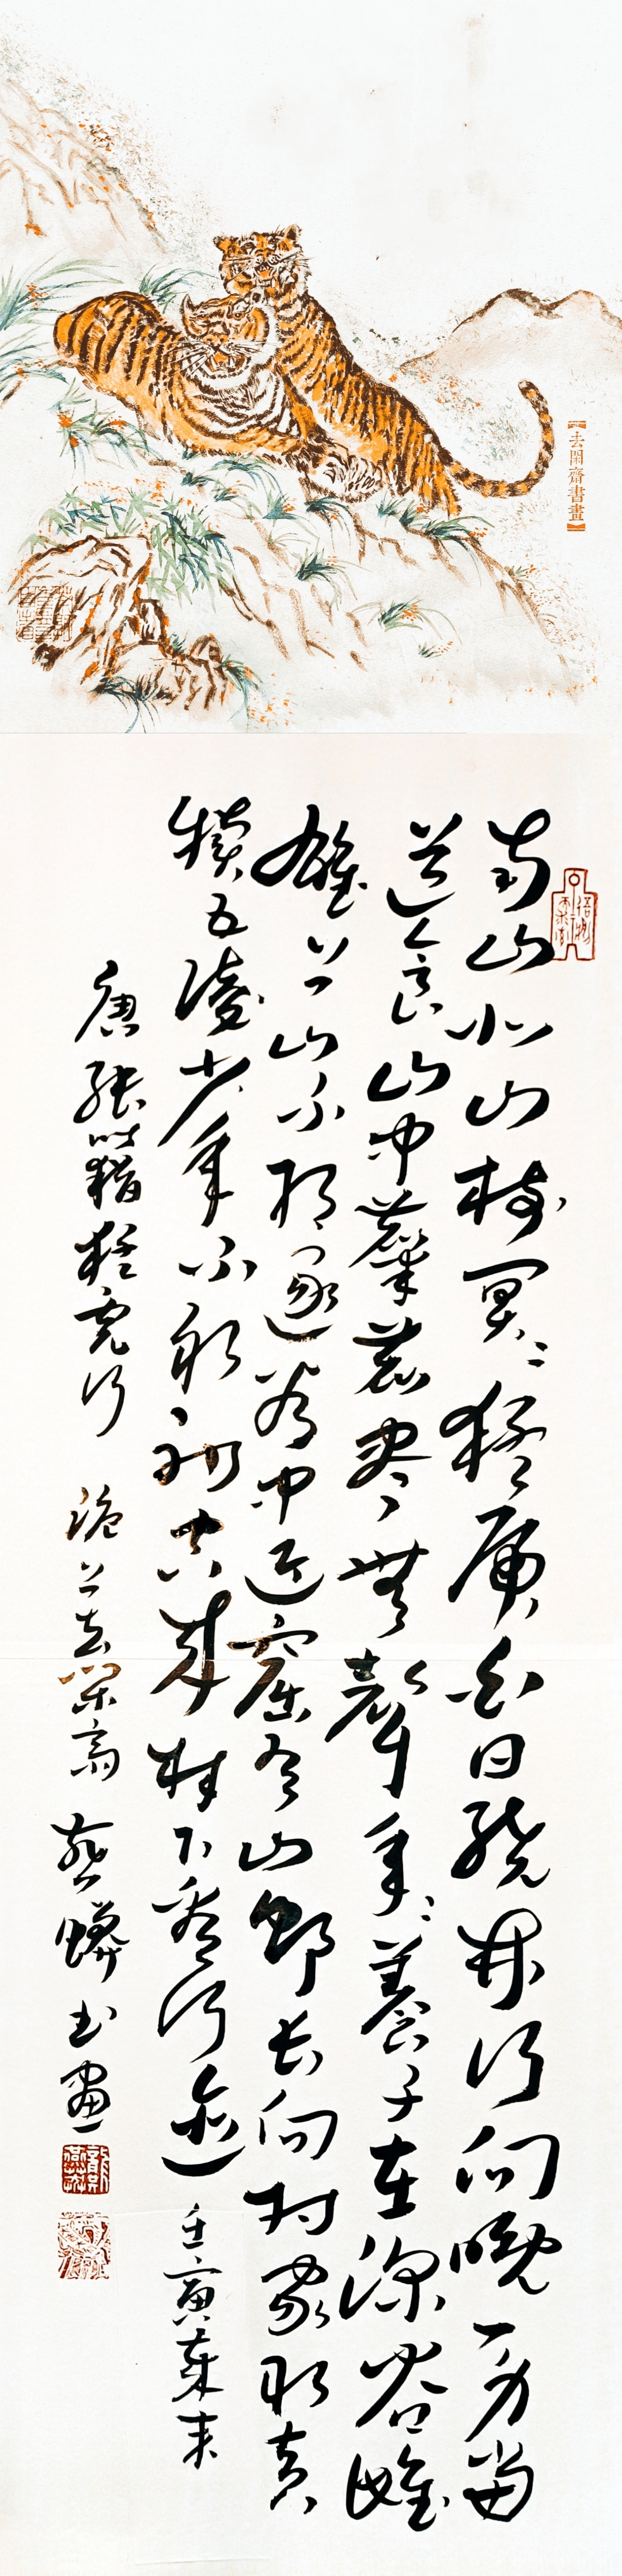 【去閑齋書畫】
南山北山樹冥〻猛虎白日繞林行向晚一身當
道食山中麋鹿盡無聲年〻養子在深谷雌
雄上山不相逐谷中近窟有山邨長向村家取黃
犢五陵少年不敢射空來林下看行迹 壬寅末
唐張籍猛虎行 滬上去閑齋 燕蟒書畫